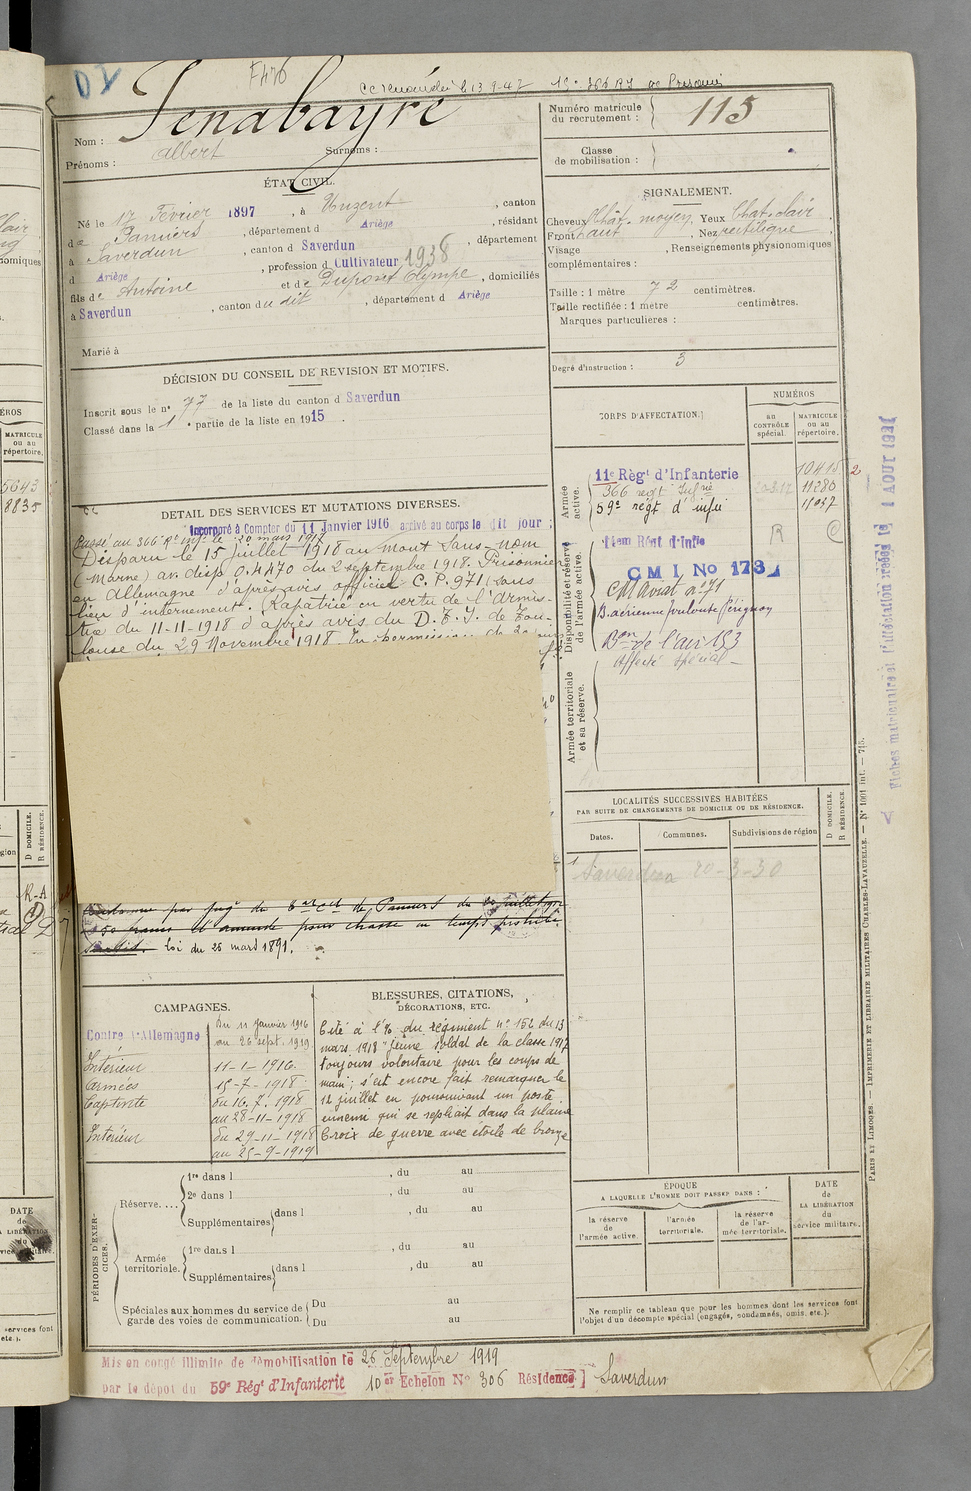 F476
Numéro matricule
du recrutement :
115
Nom :
Prénoms : Albert
Surnoms :
Classe
de mobilisation :
ÉTAT CIVIL.
Né le 17 Février 1897, à Unzent, canton
de Pamiers, département d Ariège, résidant
à Saverdun, canton d Saverdun, département
d Ariège, profession d Cultivateur 1938
fils de Antoine et de Dupont Olympe, domiciliés
à Saverdun, canton du dit, département d Ariège
Marié à
SIGNALEMENT.
Cheveux Chât. moyen Yeux Chat. clair,
Front haut, Nez rectiligne,
Visage , Renseignements physionomiques
complémentaires :
Taille : 1 mètre 72 centimètres.
Taille rectifiée : 1 mètre centimètres.
Marques particulières :
Degré d'instruction : 3
DÉCISION DU CONSEIL DE REVISION ET MOTIFS.
Inscrit sous le n° 77 de la liste du canton d Saverdun
Classé dans la 1e partie de la liste en 1915.
DÉTAIL DES SERVICES ET MUTATIONS DIVERSES.
Incorporé à Compter du 11 Janvier 1916, arrivé au corps le dit jour ;
Passé au 366e Rt Inf. le 20 mars 1917
Disparu le 15 juillet 1918 au Mont Sans-nom
(Marne) av. disp. 0.4470 du 2 septembre 1918. Prisonnier
en Allemagne d'après avis officiel C.P. 971 (sans
lieu d'internement. Rapatrié en vertu de l'Armis-
tice du 11-11-1918 d'après avis du D.F.I. de Tou-
louse du 29 Novembre 1918. En permission de
loi du 26 mars 1891.
CORPS D'AFFECTATION.
NUMÉROS
au
CONTRÔLE
spécial.
MATRICULE
ou au
répertoire.
Armée
active.
11e Règt d'Infanterie 10415
366 regt Infrie 11280
59e régt d'infie 11047
Disponibilité et réserve
de l'armée active.
11em Rèst d'Infie
R
CMI No 173
B. aérienne Toulouse Pérignon
Bon de l'air 153
Affecté spécial
Armée territoriale
et sa réserve.
LOCALITÉS SUCCESSIVES HABITÉES
PAR SUITE DE CHANGEMENTS DE DOMICILE OU DE RÉSIDENCE.
Dates.
Communes.
Subdivisions de région
D DOMICILE.
R RÉSIDENCE.
Saverdun 20-3-30
CAMPAGNES.
Contre l'Allemagne
Du 11 janvier 1916
au 26 sept. 1919.
Intérieur 11-1-1916.
Armées 15-7-1918
Captivité du 16.7.1918
au 28-11-1918
Intérieur du 29-11-1918
au 25-9-1919
BLESSURES, CITATIONS,
DÉCORATIONS, ETC.
Cité à l'O. du régiment n° 152 du 13
mars 1918 "jeune soldat de la classe 1917
toujours volontaire pour les coups de
main ; s'est encore fait remarquer le
12 juillet en poursuivant un poste
ennemi qui se repliait dans la plaine
Croix de guerre avec étoile de bronze
PÉRIODES D'EXER-
CICES.
Réserve....
1re dans l , du au
2e dans l , du au
Supplémentaires dans l , du au
Armée
territoriale.
1re dans l , du au
Supplémentaires dans l , du au
Spéciales aux hommes du service de
garde des voies de communication.
Du au
Du au
ÉPOQUE
A LAQUELLE L'HOMME DOIT PASSER DANS :
la réserve
de
l'armée active.
l'armée
territoriale.
la réserve
de l'ar-
mée territoriale.
DATE
de
LA LIBÉRATION
du
service militaire.
Ne remplir ce tableau que pour les hommes dont les services font
l'objet d'un décompte spécial (engagés, condamnés, omis, etc.).
Mis en congé illimité de démobilisation le 26 Septembre 1919
par le dépôt du 59e Régt d'Infanterie 10er Echelon No 306 Résidence] Saverdun
PARIS ET LIMOGES. — IMPRIMERIE ET LIBRAIRIE MILITAIRES CHARLES-LAVAUZELLE. — N° 1001 int. — 715.